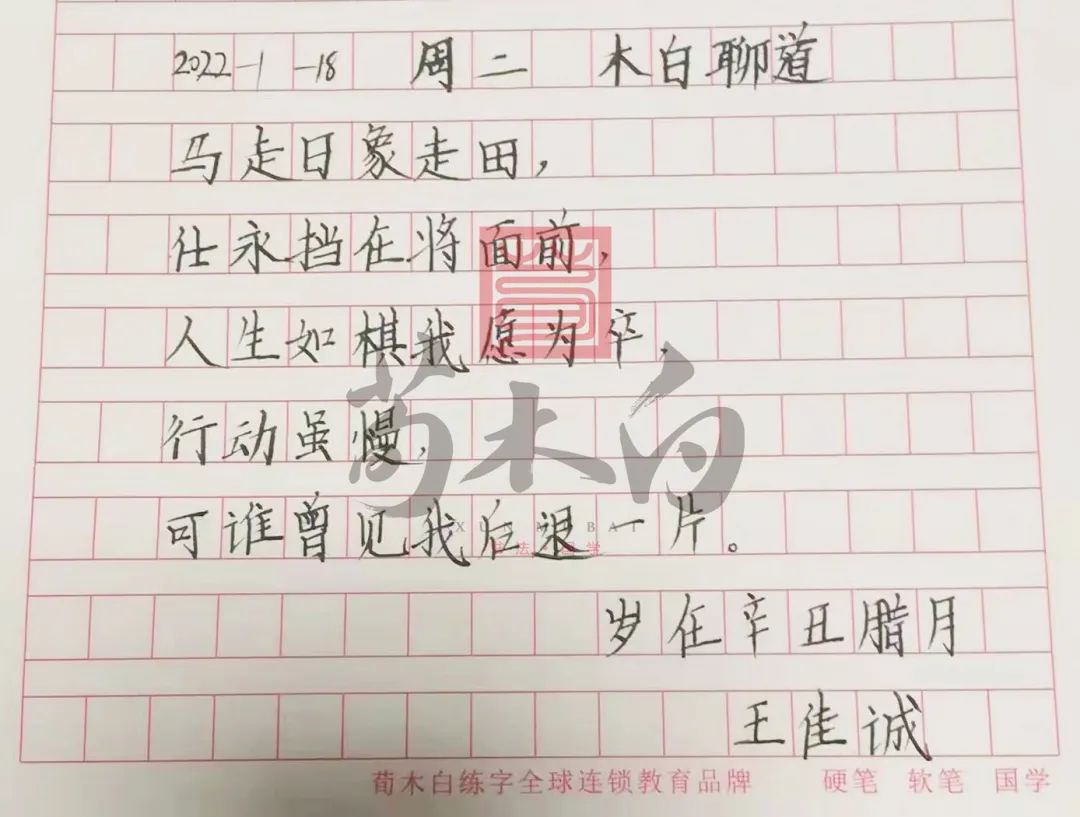 2022-1-18 周二 木白聊道
马走日象走田,
仕永挡在将面前,
人生如棋我愿为卒,
行动虽慢,
荀木白
可谁曾见我后退一片。
XUN MU BAI
书法 国学
岁在辛丑腊月
王佳诚
荀木白练字全球连锁教育品牌 硬笔 软笔 国学